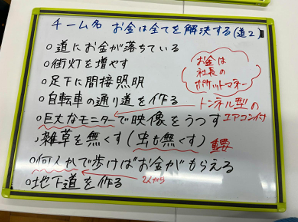 チーム名 お金は全てを解決する(道2
○道にお金が落ちている
○街灯を増やす
○足下に間接照明
○自転車の通り道を作る
トンネル型の
エアコン付
○巨大なモニターで映像をうつす
○雑草を無くす(虫も無くす)
重要
○何人かで歩けばお金がもらえる
○地下道を作る
お金は
社長の
ポケットマネー